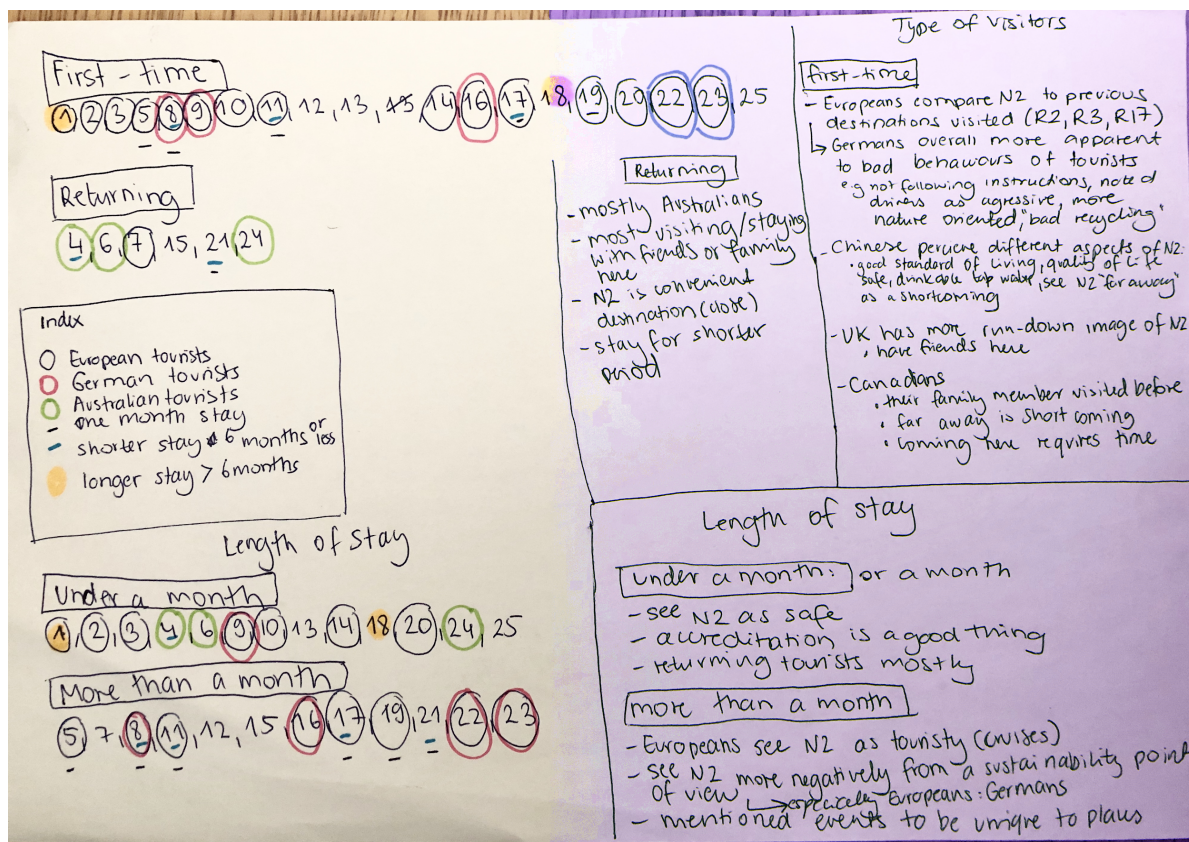 First-time
1 2 3 5 8 9 10, 11, 12, 13, 14 16 17, 18, 19, 20 22 23, 25
Returning
4, 6, 7, 15, 21, 24
Index
European tourists
German tourists
Australian tourists
one month stay
shorter stay 6 months or less
longer stay > 6 months
Length of Stay
Under a month
1, 2, 3, 4, 6, 9, 10, 13, 14, 18, 20, 24, 25
More than a month
5, 7, 8, 11, 12, 15, 16, 17, 19, 21, 22, 23
Returning
- mostly Australians
- most visiting/staying
with friends or family
here
- NZ is convenient
destination (close)
- stay for shorter
period
Type of Visitors
first-time
- Europeans compare NZ to previous
destinations visited (R2, R3, R17)
↳ Germans overall more apparent
to bad behaviours of tourists
e.g not following instructions, noted
drivers as agressive, more
nature oriented, "bad recycling"
- Chinese percieve different aspects of NZ:
• good standard of living, quality of life
safe, drinkable tap water, see NZ "far away"
as a shortcoming
- UK has more run-down image of NZ
• have friends here
- Canadians
• their family member visited before
• far away is short coming
• coming here requires time
Length of stay
under a month: or a month
- see NZ as safe
- accreditation is a good thing
- returning tourists mostly
more than a month
- Europeans see NZ as touristy (cruises)
- see NZ more negatively from a sustainability point
of view
↳ especially Europeans: Germans
- mentioned events to be unique to places